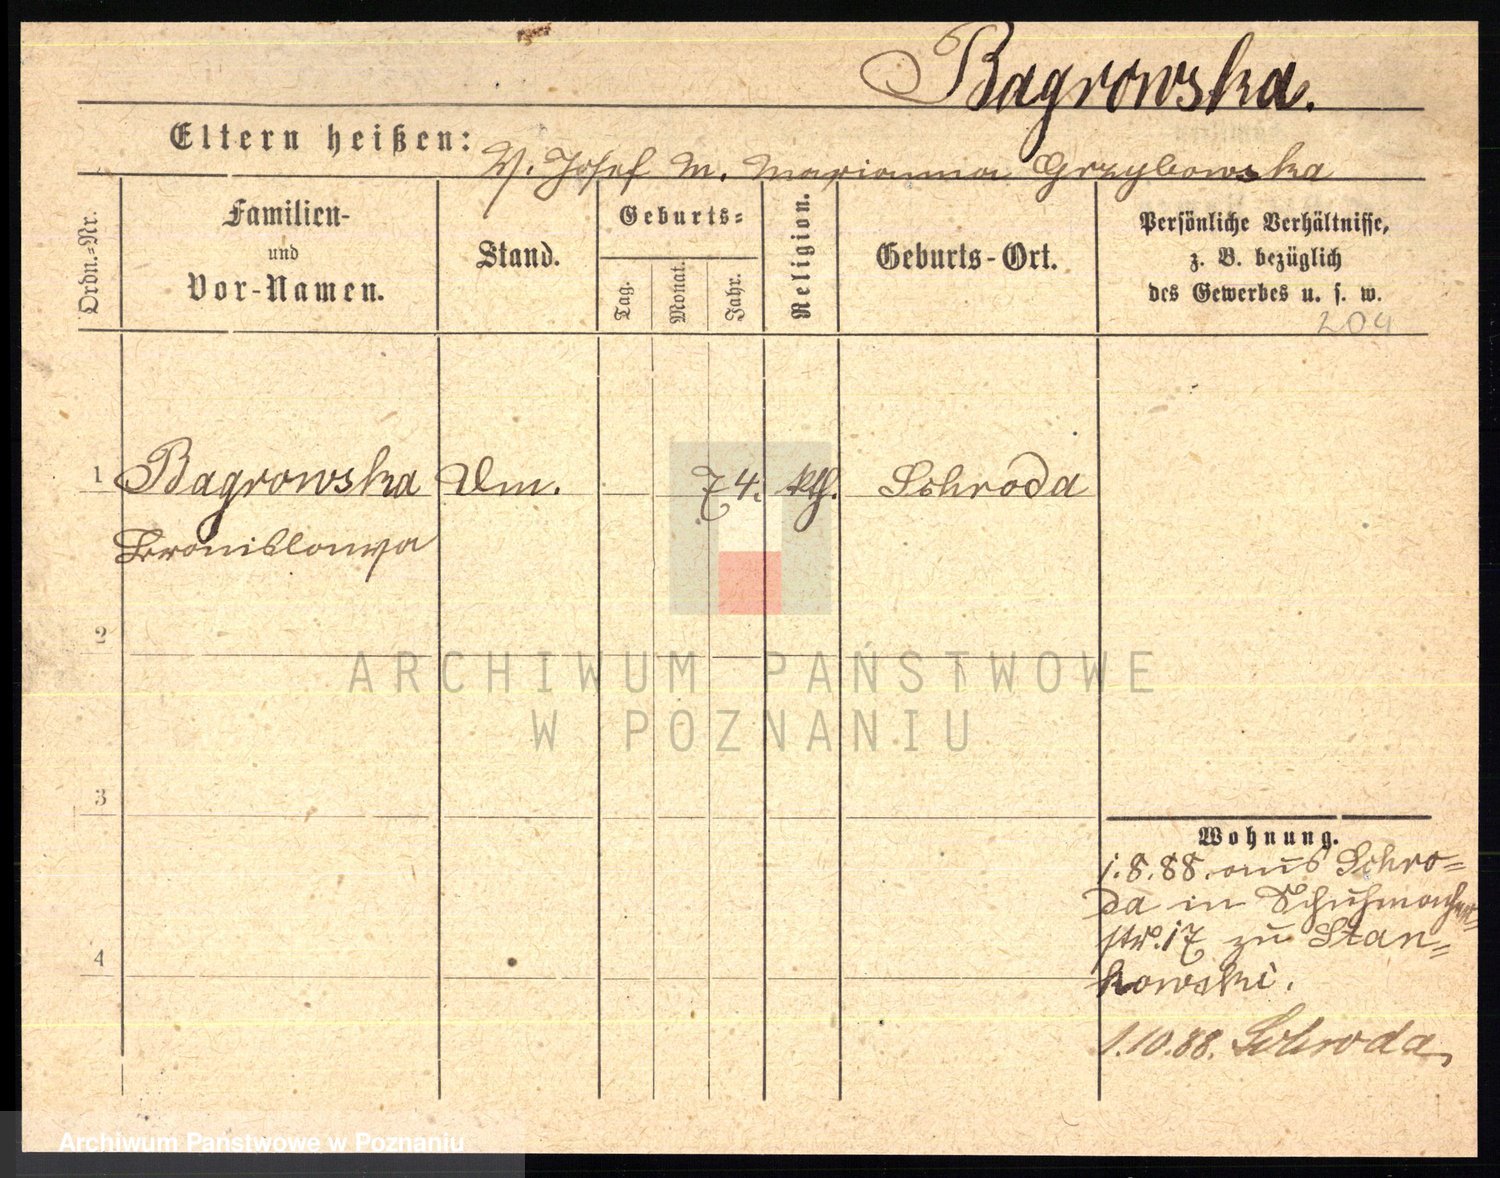 Bagrowska.
Eltern heißen: V. Josef M. Marianna Grzybowska
Ordn.-Nr.
Familien-
und
Vor-Namen.
Stand.
Geburts-
Tag.
Monat.
Jahr.
Religion.
Geburts-Ort.
Persönliche Verhältnisse,
z. B. bezüglich
des Gewerbes u. s. w.
204
1 Bagrowska 74. kth. Schroda
Bronislawa
2
3
4
Wohnung.
1.8.88. aus Schro-
da in Schuhmacher-
str. 17 zu Stan-
kowski.
1.10.88. Schroda
ARCHIWUM PAŃSTWOWE
W POZNANIU
Archiwum Państwowe w Poznaniu